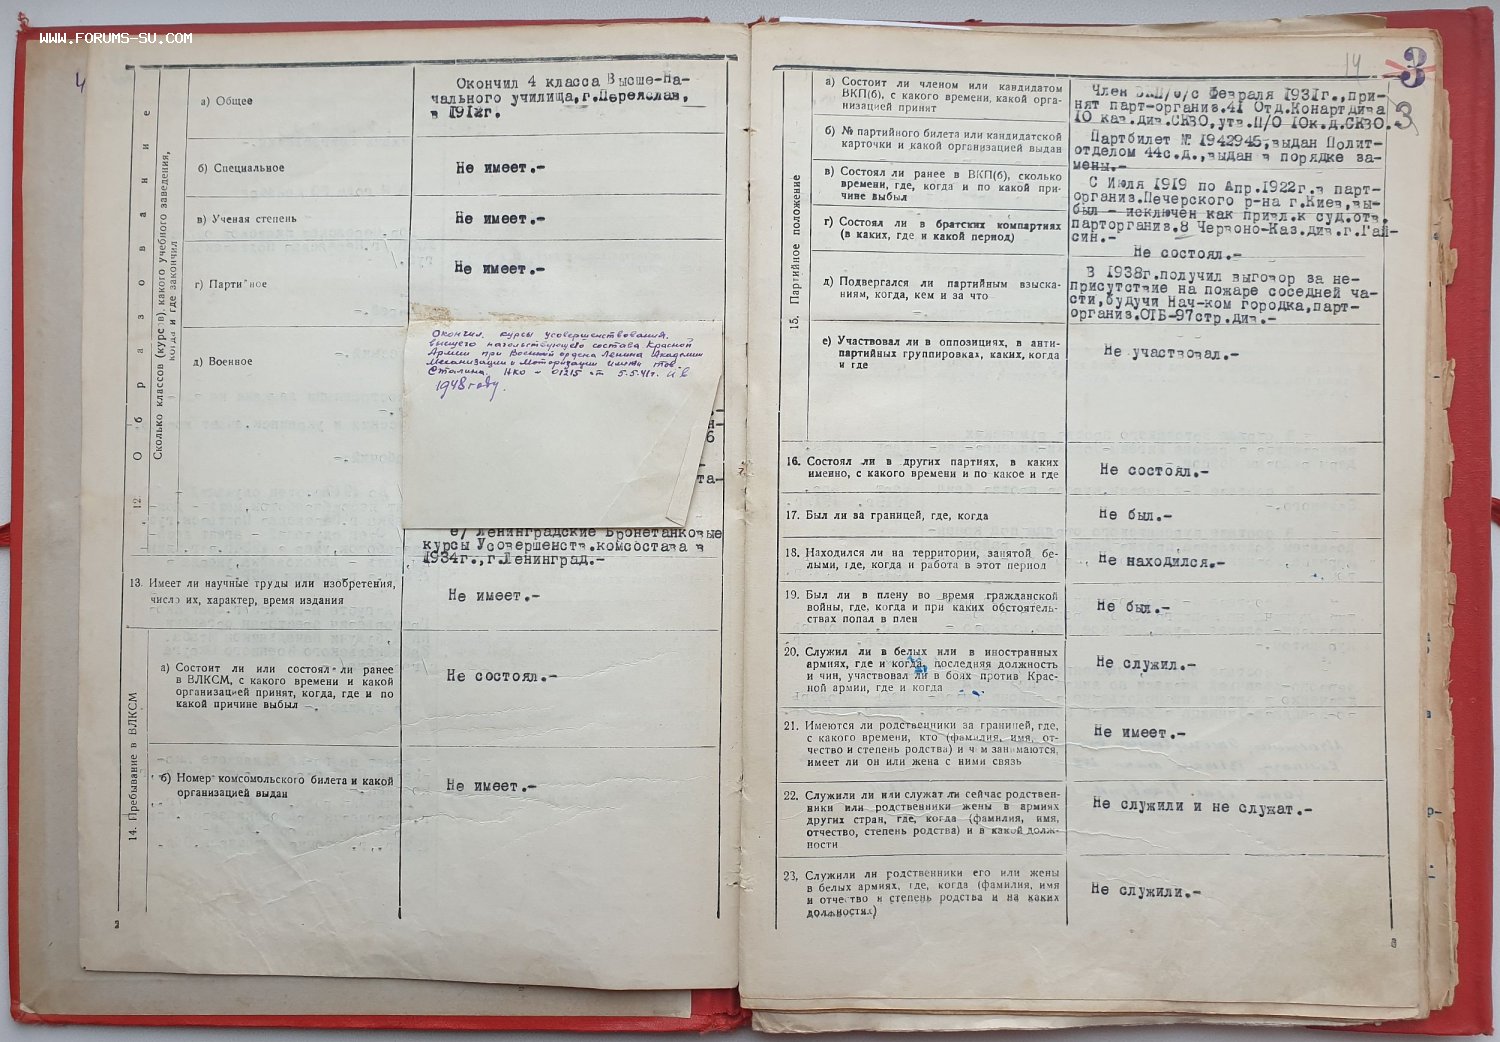 WWW.FORUMS-SU.COM
4
12. Образование
Сколько классов (курсов), какого учебного заведения,
когда и где закончил
а) Общее
Окончил 4 класса Высше-на-
чального училища,г.Переяслав,
в 1912г.
б) Специальное
Не имеет.-
в) Ученая степень
Не имеет.-
г) Партийное
Не имеет.-
д) Военное
Окончил курсы усовершенствований
высшего начальствующего состава Красной
Армии при Военной ордена Ленина Академии
Механизации и Моторизации имени тов.
Сталина. НКО - 01215 от 5.5.41г.
1948 году.
та-
е/ Ленинградские Бронетанковые
курсы Усовершенств.комсостава в
1934г.,г.Ленинград.-
13. Имеет ли научные труды или изобретения,
число их, характер, время издания
Не имеет.-
14. Пребывание в ВЛКСМ
а) Состоит ли или состоял ли ранее
в ВЛКСМ, с какого времени и какой
организацией принят, когда, где и по
какой причине выбыл
Не состоял.-
б) Номер комсомольского билета и какой
организацией выдан
Не имеет.-
2
14
3
3
15. Партийное положение
а) Состоит ли членом или кандидатом
ВКП(б), с какого времени, какой орга-
низацией принят
Член ВКП/б/с Февраля 1931г.,при-
нят парт-организ.41 Отд.Конартдива
10 кав.див.СКВО,утв.П/О 10к.д.СКВО.-
б) № партийного билета или кандидатской
карточки и какой организацией выдан
Партбилет № 1942945,выдан Полит-
отделом 44с.д.,выдан в порядке за-
мены.-
в) Состоял ли ранее в ВКП(б), сколько
времени, где, когда и по какой при-
чине выбыл
С Июля 1919 по Апр.1922г.в парт-
организ.Печерского р-на г.Киев,вы-
был - исключен как привл.к суд.отв.
парторганиз.8 Червоно-Каз.див.г.Гай-
син.-
г) Состоял ли в братских компартиях
(в каких, где и какой период)
Не состоял.-
д) Подвергался ли партийным взыска-
ниям, когда, кем и за что
В 1938г.получил выговор за не-
присутствие на пожаре соседней ча-
сти,будучи Нач-ком городка,парт-
организ.ОТБ-97стр.див.-
е) Участвовал ли в оппозициях, в анти-
партийных группировках, каких, когда
и где
Не участвовал.-
16. Состоял ли в других партиях, в каких
именно, с какого времени и по какое и где
Не состоял.-
17. Был ли за границей, где, когда
Не был.-
18. Находился ли на территории, занятой бе-
лыми, где, когда и работа в этот период
Не находился.-
19. Был ли в плену во время гражданской
войны, где, когда и при каких обстоятель-
ствах попал в плен
Не был.-
20. Служил ли в белых или в иностранных
армиях, где и когда, последняя должность
и чин, участвовал ли в боях против Крас-
ной армии, где и когда
Не служил.-
21. Имеются ли родственники за границей, где,
с какого времени, кто (фамилия, имя, от-
чество и степень родства) и чем занимаются,
имеет ли он или жена с ними связь
Не имеет.-
22. Служили ли или служат ли сейчас родствен-
ники или родственники жены в армиях
других стран, где, когда (фамилия, имя,
отчество, степень родства) и в какой долж-
ности
Не служили и не служат.-
23. Служили ли родственники его или жены
в белых армиях, где, когда (фамилия, имя
и отчество и степень родства и на каких
должностях)
Не служили.-
3